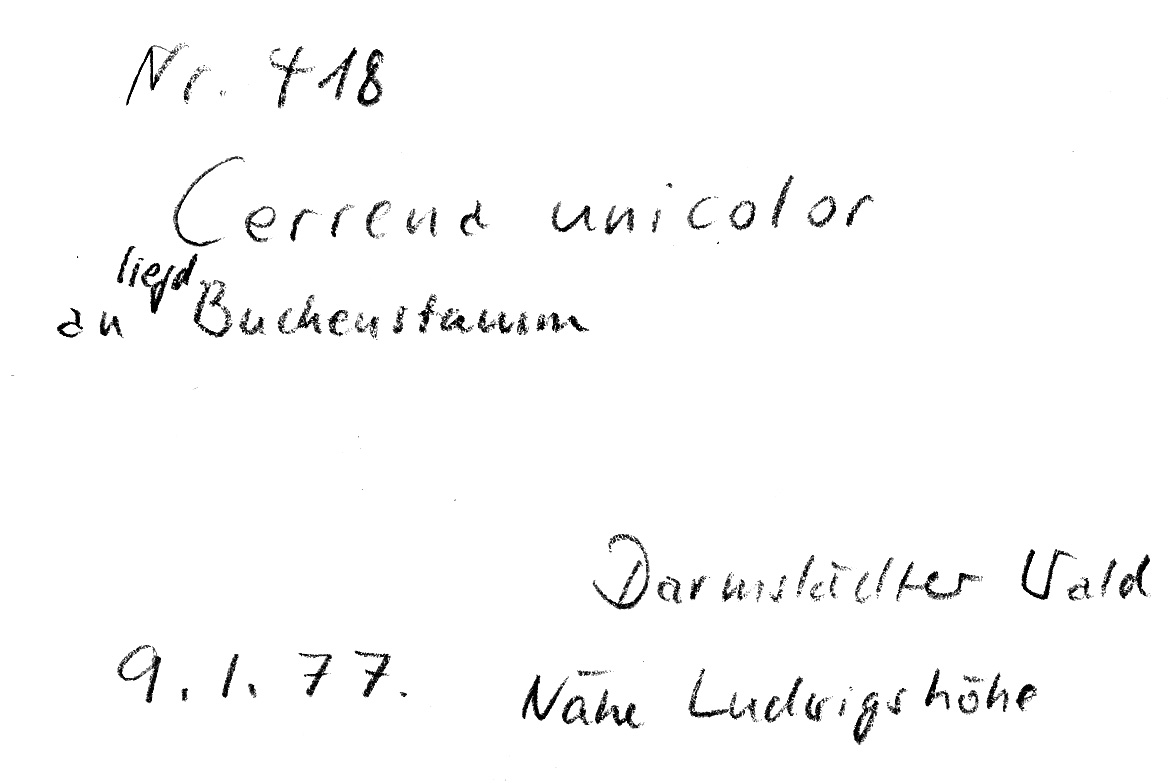 Nr. 418
Cerrena unicolor
liegd
an Buchenstamm
Darmstädter Wald
9.1.77. Nähe Ludwigshöhe